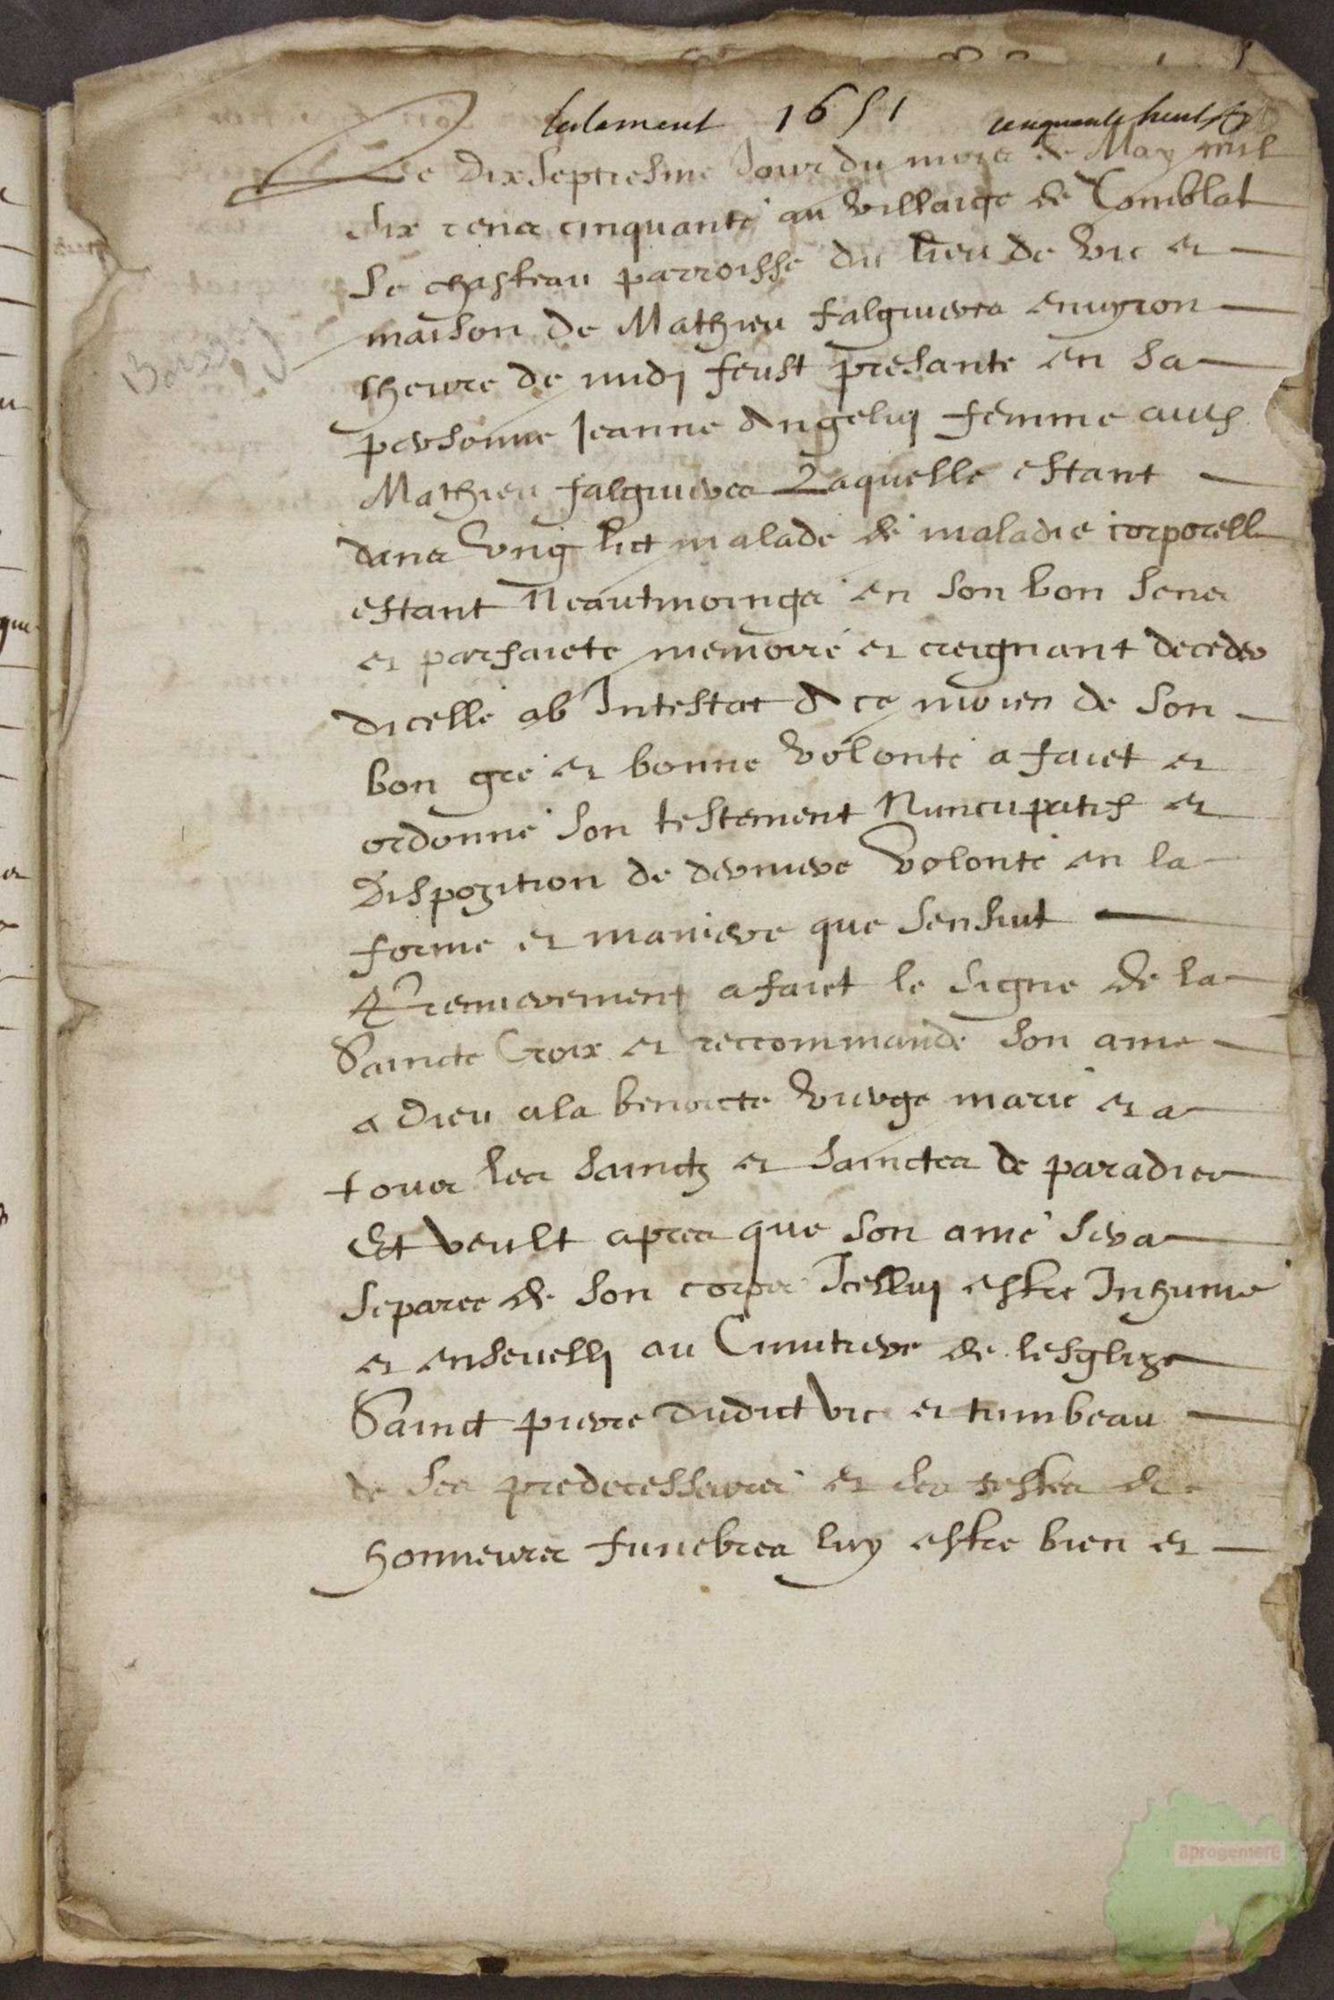 testament 1651 cinquante huit
Le dix septiesme Jour du mois de May mil
six cens cinquante au villaige de Comblat
le chasteau parroisse du lieu de Vic et
maison de Mathieu falguieres enuyron
lheure de midj feust presante en sa
personne Jeanne Angeliy femme auds
Mathieu falguieres Laquelle estant
dans vng lict malade de maladie corporelle
estant Neautmoings en son bon sens
et parfaicte memoire et creignant deceder
dicelle ab Intestat A ce moien de son
bon gre et bonne volonte a faict et
ordonne son testement Nuncupatif et
Dispozition de derniere volonte en la
forme et maniere que sensuit
Premierement a faict le signe de la
Saincte Croix et reccommande son ame
a dieu a la benoicte vierge marie et a
tous les saincts et sainctes de paradies
Et veult apres que son ame sera
separee de son corps Icelluy estre Inhume
et enseuelly au Cimitiere de lesglize
Sainct pierre dudict vic et tumbeau
de ses predecesseures et les
honneures funebres luy estre bien et
Barrez
aprogemere